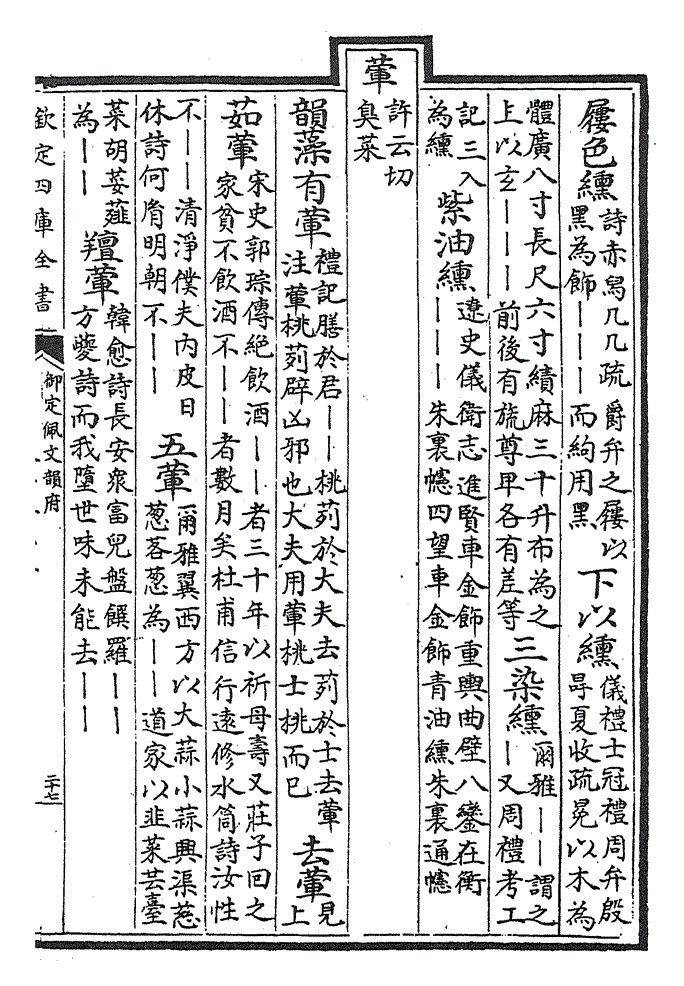 屨色纁詩赤舄几几疏爵弁之屨以黑為飾｜｜｜而絇用黑下以纁儀禮士冠禮周弁殷冔夏收疏冕以木為
體廣八寸長尺六寸績麻三十升布為之上以玄｜｜｜前後有旒尊卑各有差等三染纁爾雅｜｜謂之｜又周禮考工
記三入為纁紫油纁遼史儀衛志進賢車金飾重輿曲壁八鑾在衡｜｜｜朱裏幰四望車金飾青油纁朱裏通幰
葷許云切臭菜
韻藻有葷禮記膳於君｜｜桃茢於大夫去茢於士去葷注葷桃茢辟凶邪也大夫用葷桃士桃而已去葷見上
茹葷宋史郭琮傳絕飲酒｜｜者三十年以祈母壽又莊子回之家貧不飲酒不｜｜者數月矣杜甫信行遠修水筒詩汝性
不｜｜清淨僕夫內皮日休詩何胤明朝不｜｜五葷爾雅翼西方以大蒜小蒜興渠慈葱茖葱為｜｜道家以韭菜芸臺
菜胡荽薤為｜｜羶葷韓愈詩長安衆富兒盤饌羅｜｜方夔詩而我墮世味未能去｜｜
欽定四庫全書
御定佩文韻府
二十七